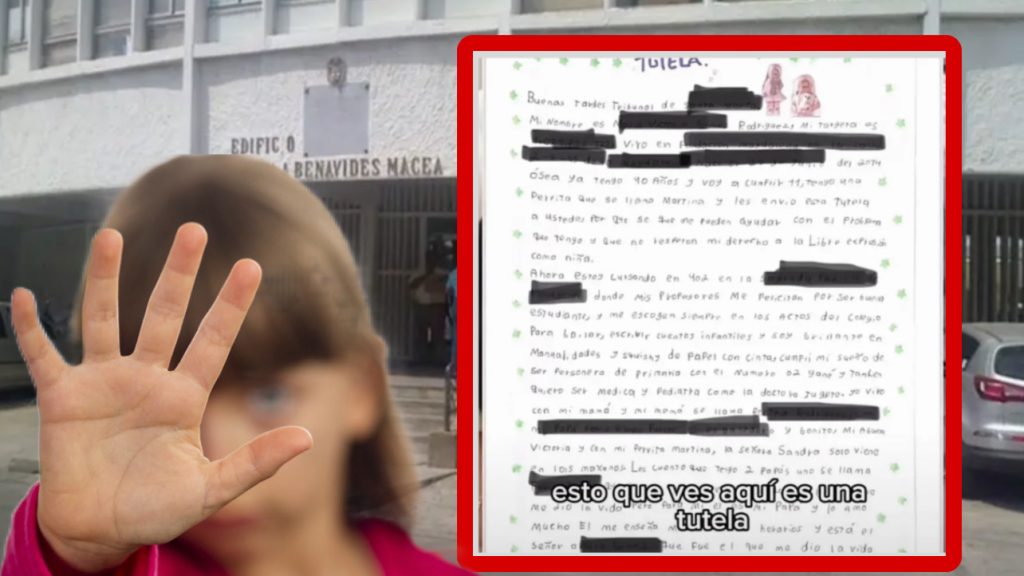 EDIFIC O
BENAVIDES MACEA
TUTELA.
Buenas Tardes Tribunos de
Mi Nombre es Rodriguez Mi Targeta es
Vivo en
del 2014
ósea ya Tengo 10 Años y voy a cumplir 11, Tengo una
Perrita que se llama Martina y les envio esta Tutela
a ustedes por que se que me pueden ayudar con el Problema
que tengo y que no respeten mi derecho a la Libre expresión
como niña.
Ahora estoy cursando en 402 en la
donde Mis Profesores Me felicitan Por ser buena
estudiante, y me escogen siempre en los Actos del Colegio
Para bailar, escribir cuentos infantiles y soy brillante en
Manualidades y squishy de Papel con cinta, cumplí mi sueño de
ser Personera de primaria con el Numero 02 Gané y También
quiero ser Medica y Pediatra como la doctora Yo Vivo
con mi mamá y mi mamá se llama
y Bonitos Mi Abuela
Victoria y con mi Perrita Martina, la señora Sandra solo viene
en las mañanas Les cuento que Tengo 2 Papás uno se llama
me dio la Vida Pero Para mi Mi Papá y lo amo
Mucho El me enseña horarios y está el
Señor que fue el que me dio la vida
esto que ves aquí es una
tutela